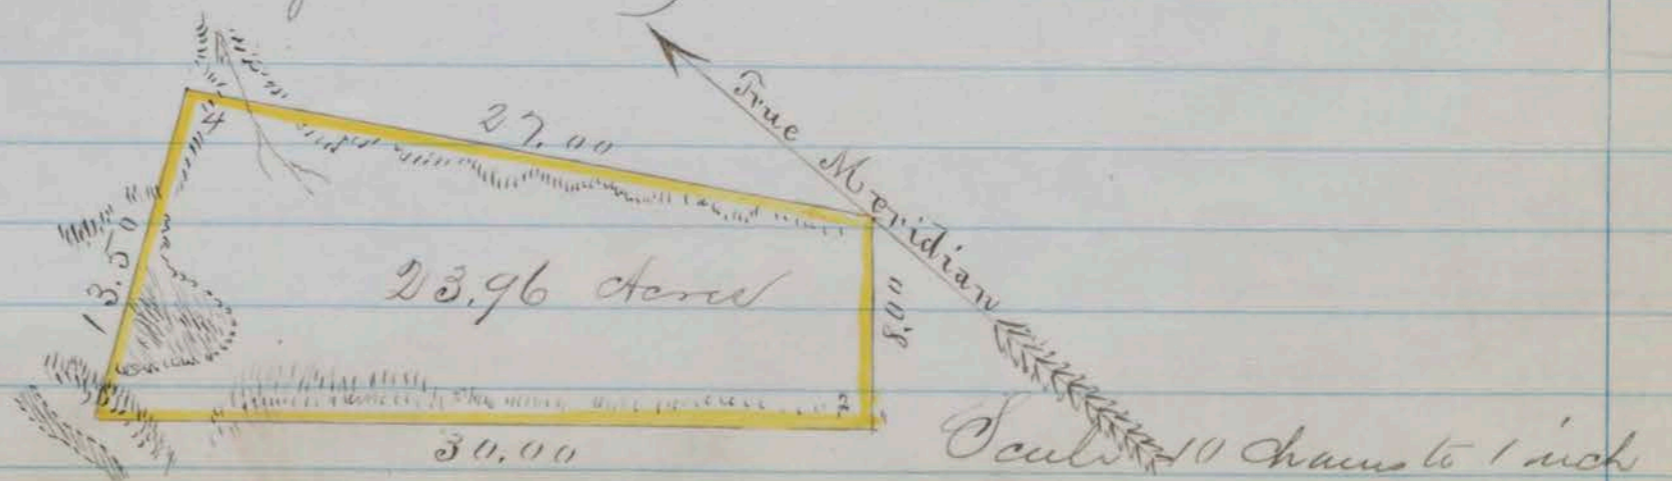 4
27.00
True Meridian
13.50
23.96 Acres
8.00
2
30.00
Scale 10 chains to 1 inch